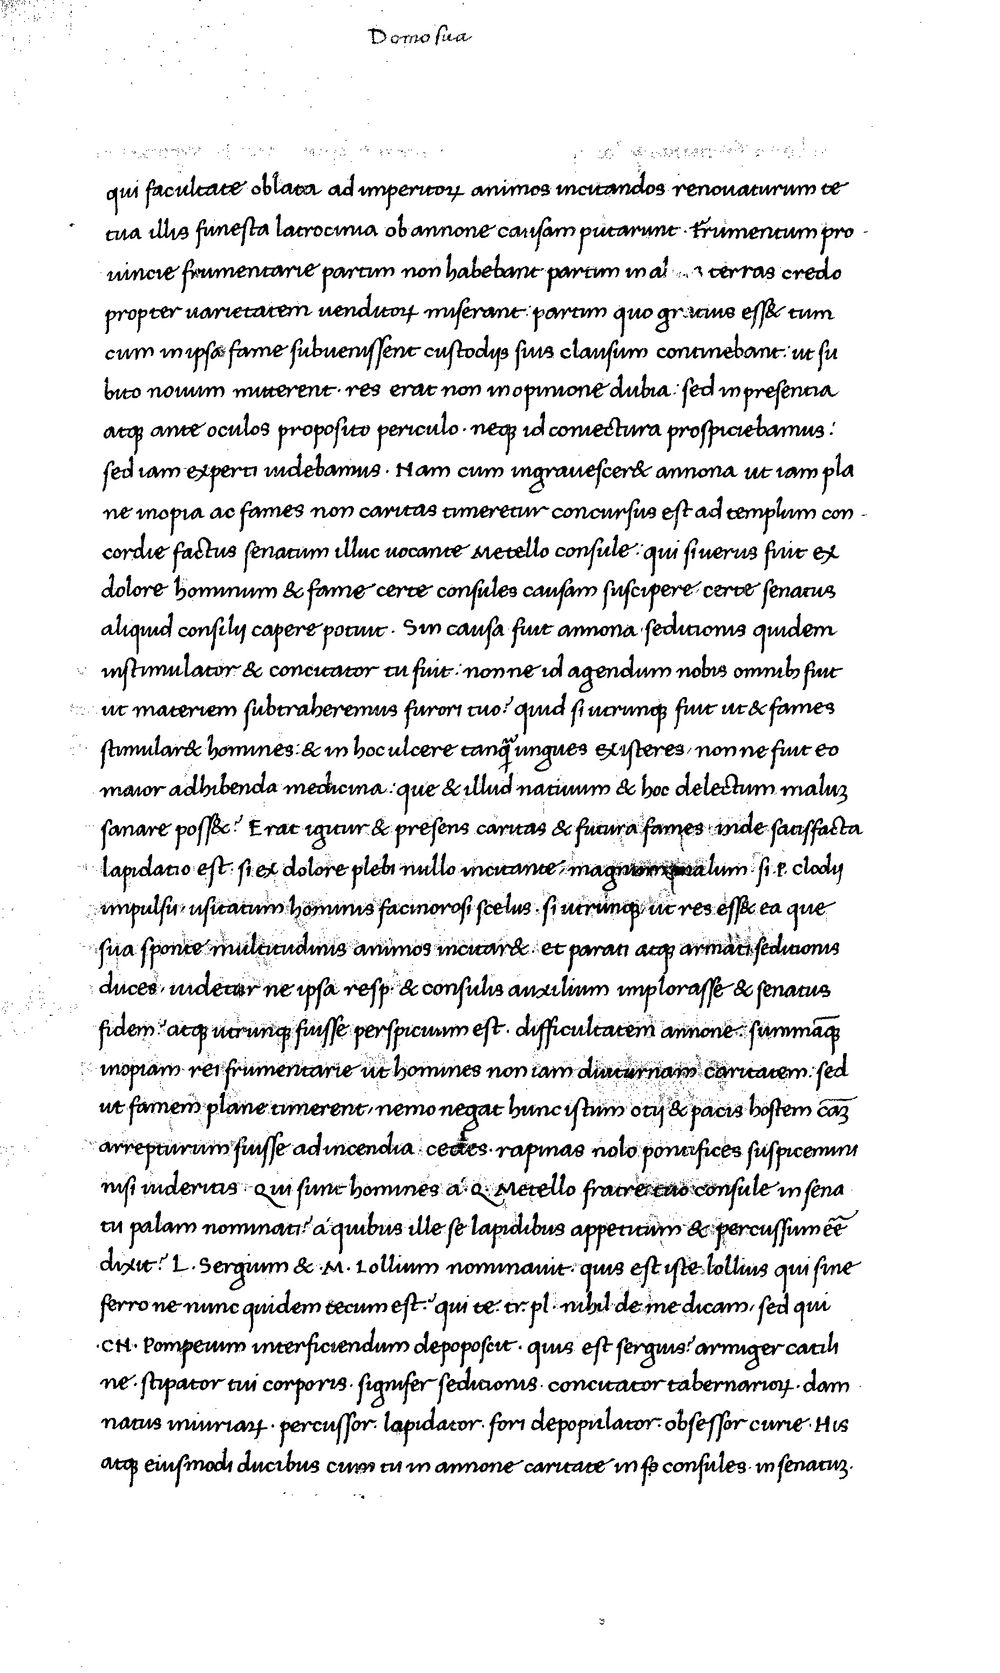 Domo sua
qui facultate oblata ad imperitoꝝ animos incitandos renouaturum te
tua illis funesta latrocinia ob annone causam putarunt · frumentum pro-
uincie frumentarie partim non habebant partim in al terras credo
propter uarietatem uenditoꝝ miserant: partim quo gratius ess& tum
cum in ipsa fame subuenissent custodijs suis clausum continebant: ut su
bito nouum mitterent · res erat non in opinione dubia: sed in presentia
atqꝫ ante oculos proposito periculo · neqꝫ id coniectura prospiciebamus:
sed iam experti uidebamus · Nam cum ingrauescer& annona ut iam pla
ne inopia ac fames non caritas timeretur concursus est ad templum con-
cordie factus senatum illuc uocante Metello consule: qui si uerus fuit ex
dolore hominum & fame certe consules causam suscipere, certe senatus
aliquid consilij capere potuit · Sin causa fuit annona seditionis quidem
instimulator & concitator tu fuit: nonne id agendum nobis omnibꝫ fuit
ut materiem subtraheremus furori tuo? quid si utrunqꝫ fuit ut & fames
stimular& homines: & in hoc ulcere tanq̃ ungues existeres, nonne fuit eo
maior adhibenda medicina: que & illud natiuum & hoc delectum maluꝫ
sanare poss&? Erat igitur & presens caritas & futura fames · inde satisfacta
lapidatio est · si ex dolore plebi nullo incitante, magnum malum · si · P. Clodij
impulsu, usitatum hominis facinorosi scelus · si utrunqꝫ, ut res ess& ea que
sua sponte multitudinis animos incitar& · et parati atqꝫ armati seditionis
duces, uidetur ne ipsa resp · & consulis auxilium implorasse & senatus
fidem? atqꝫ utrunqꝫ fuisse perspicuum est · difficultatem annone: summāqꝫ
inopiam rei frumentarie ut homines non iam diuturnam caritatem: sed
ut famem plane timerent, nemo negat hunc istum otij & pacis hostem cāꝫ
arrepturum fuisse ad incendia · cedes · rapinas nolo pontifices suspicemini
nisi uideritis · Qui sunt homines a · Q. Metello fratre tuo consule in sena
tu palam nominati? a quibus ille se lapidibus appetitum & percussum eē
dixit? L. Sergium & M. Lollium nominauit · quis est iste lollius qui sine
ferro ne nunc quidem tecum est? qui te · tr · pl · nihil de me dicam, sed qui
· CN · Pompeium interficiendum depoposcit · quis est sergius? armiger catili
ne · stipator tui corporis · signifer seditionis · concitator tabernarioꝝ · dam
natus iniuriaꝝ · percussor · lapidator · fori depopulator: obsessor curie · His
atqꝫ eiusmodi ducibus cum tu in annone caritate in consules · in senatuꝫ ·